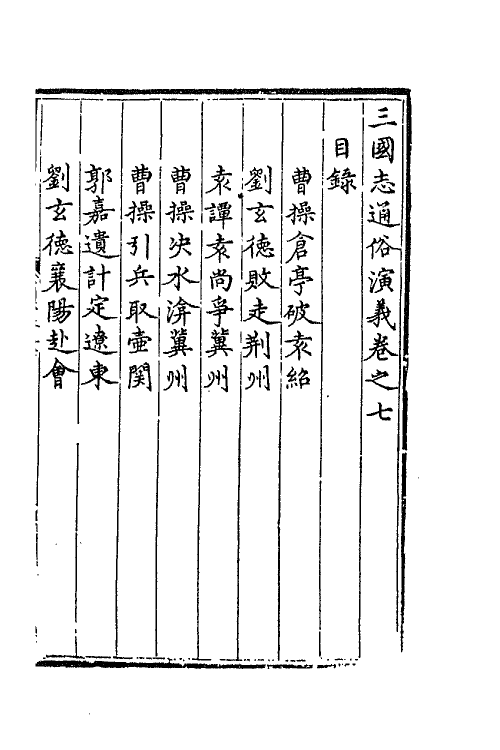 三國志通俗演義卷之七
目錄
曹操倉亭破袁紹
劉玄徳敗走荆州
袁譚袁尚爭冀州
曹操决水渰冀州
曹操引兵取壷関
郭嘉遺計定遼東
劉玄徳襄陽赴會